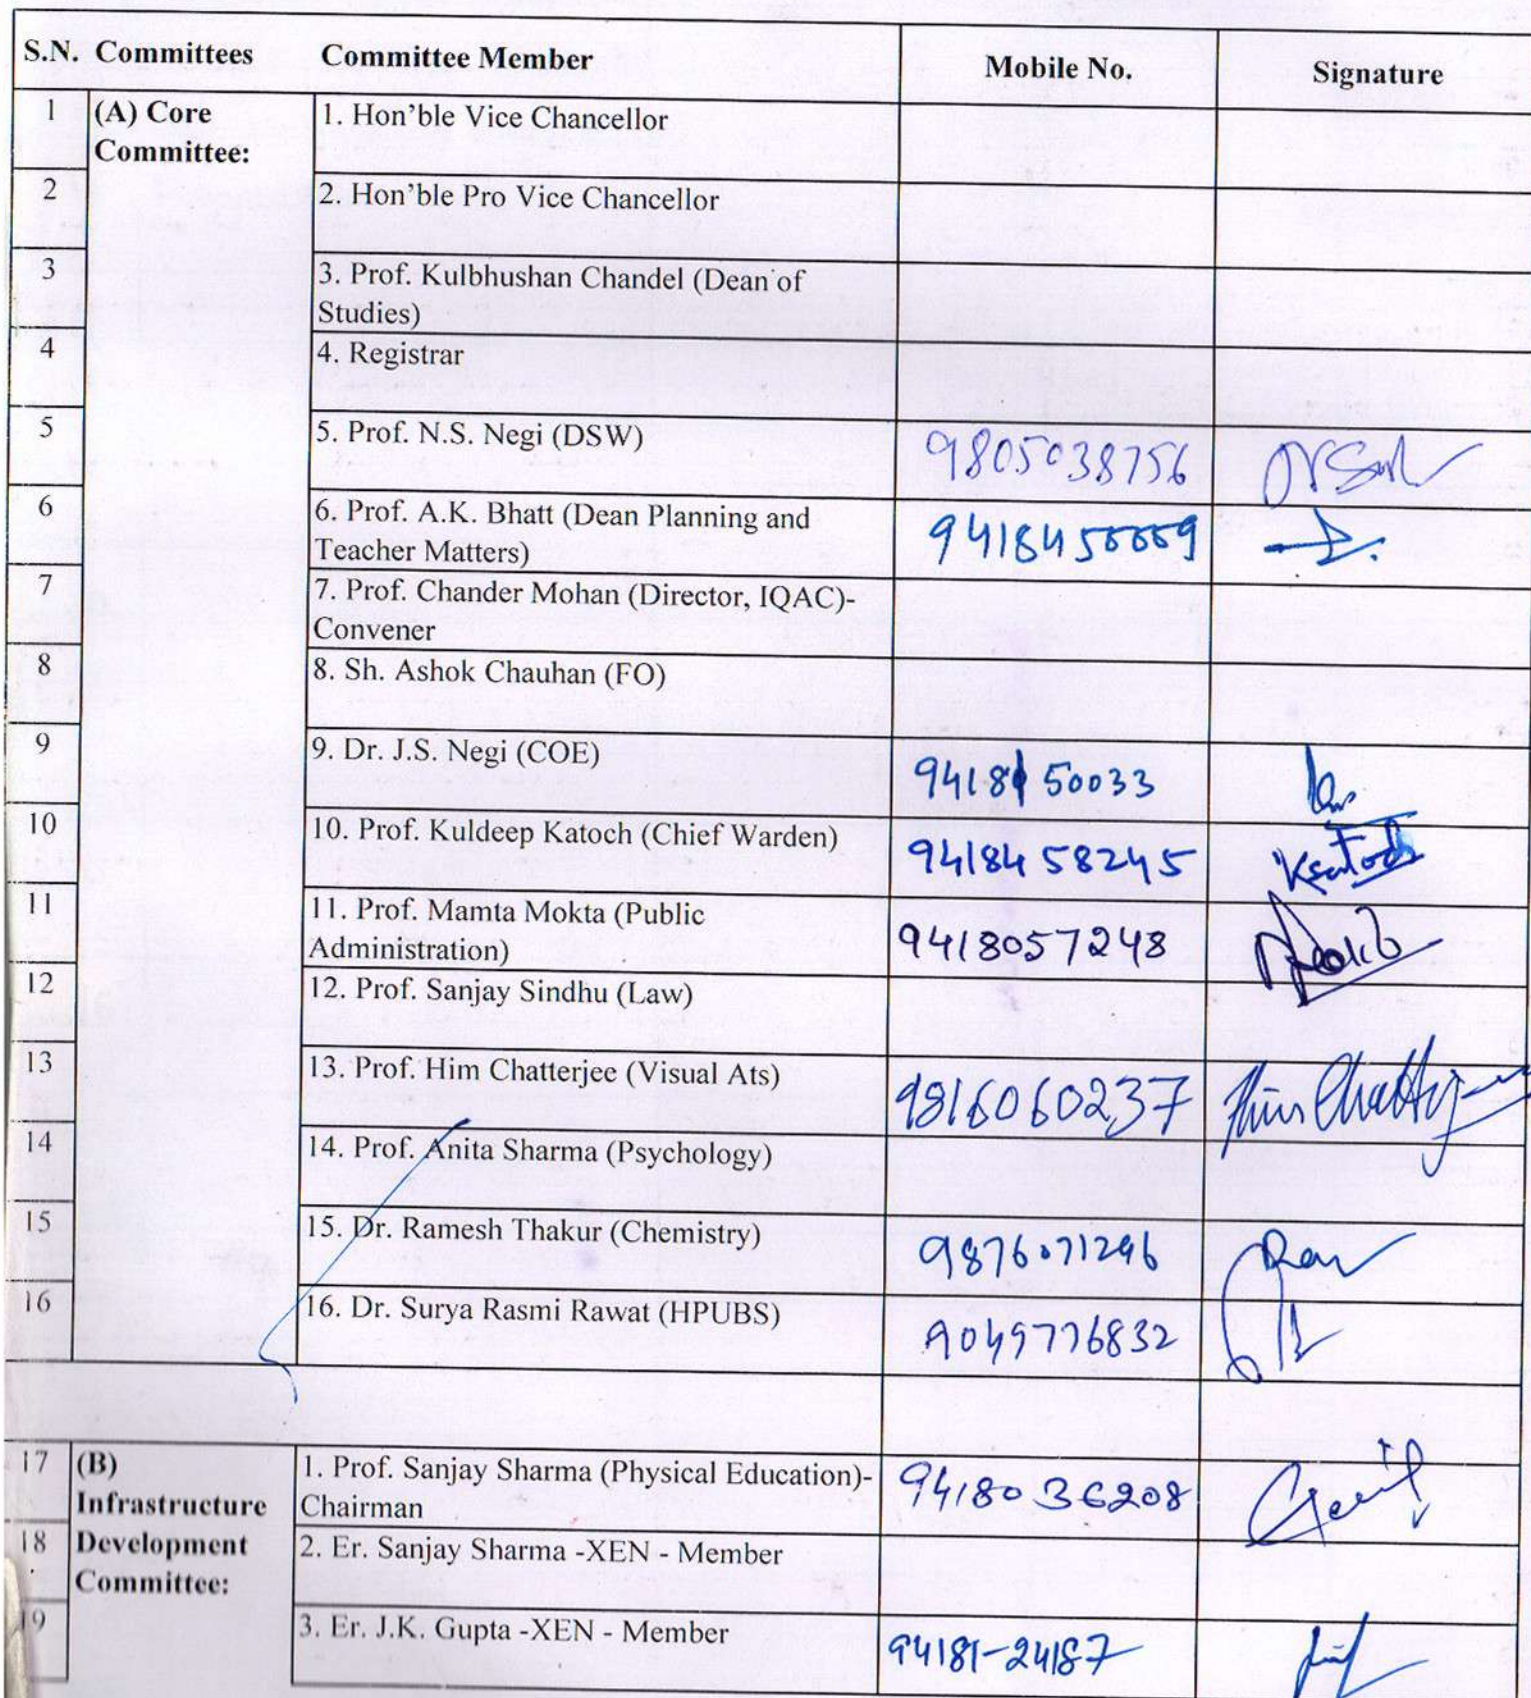 S.N. Committees Committee Member Mobile No. Signature
1 (A) Core Committee: 1. Hon'ble Vice Chancellor
2 2. Hon'ble Pro Vice Chancellor
3 3. Prof. Kulbhushan Chandel (Dean of
Studies)
4 4. Registrar
5 5. Prof. N.S. Negi (DSW) 9805038756
6 6. Prof. A.K. Bhatt (Dean Planning and
Teacher Matters)
7 7. Prof. Chander Mohan (Director, IQAC)-
Convener
8 8. Sh. Ashok Chauhan (FO)
9 9. Dr. J.S. Negi (COE)
10 10. Prof. Kuldeep Katoch (Chief Warden) 9418458245
11 11. Prof. Mamta Mokta (Public
Administration) 9418057248
12 12. Prof. Sanjay Sindhu (Law)
13 13. Prof. Him Chatterjee (Visual Ats) 9816060237 Him Chatterjee
14 14. Prof. Anita Sharma (Psychology)
15 15. Dr. Ramesh Thakur (Chemistry) 9876071296
16 16. Dr. Surya Rasmi Rawat (HPUBS)
17 (B)
Infrastructure
Development
Committee: 1. Prof. Sanjay Sharma (Physical Education)-
Chairman 9418036208
18 2. Er. Sanjay Sharma -XEN - Member
19 3. Er. J.K. Gupta -XEN - Member 94181-24187